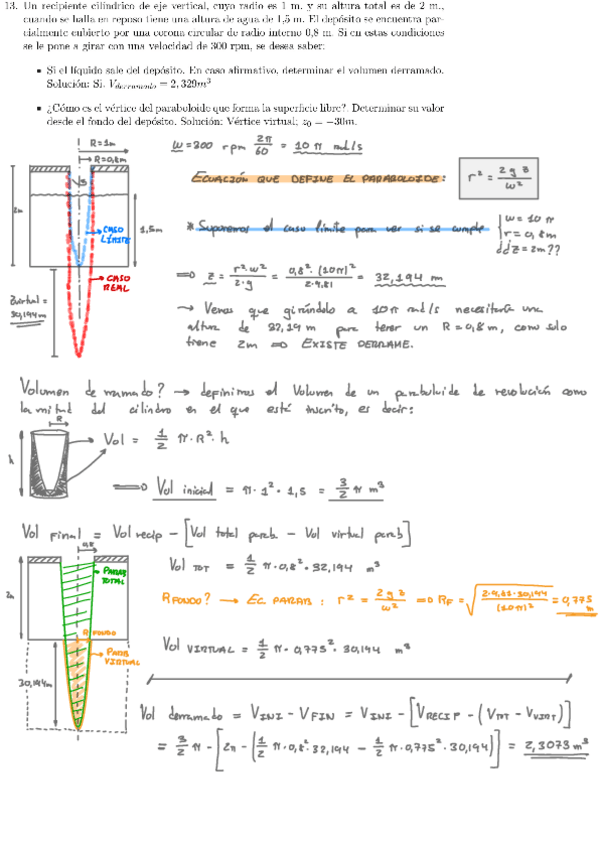 13. Un recipiente cilíndrico de eje vertical, cuyo radio es 1 m. y su altura total es de 2 m.,
cuando se halla en reposo tiene una altura de agua de 1,5 m. El depósito se encuentra par-
cialmente cubierto por una corona circular de radio interno 0,8 m. Si en estas condiciones
se le pone a girar con una velocidad de 300 rpm, se desea saber:
• Si el líquido sale del depósito. En caso afirmativo, determinar el volumen derramado.
Solución: Si. V_derramado = 2,329m³
• ¿Cómo es el vértice del paraboloide que forma la superficie libre?. Determinar su valor
desde el fondo del depósito. Solución: Vértice virtual; z₀ = −30m.
R=1m
R=0,8m
2m
1,5m
CASO LÍMITE
CASO REAL
Zvirtual =
30,194m
ω=300 rpm 2π/60 = 10 π rad/s
ECUACIÓN QUE DEFINE EL PARABOLOIDE: r² = 2gz/ω²
* Suponemos el caso límite para ver si se cumple { ω = 10 π
r = 0,8m
¿¿Z = 2m??
=> z = r²·ω²/2·g = 0,8²·(10π)²/2·9,81 = 32,194 m
→ Vemos que girándolo a 10π rad/s necesitaría una
altura de 32,19 m para tener un R=0,8m, como solo
tiene 2m => EXISTE DERRAME.
Volumen derramado? → definimos el Volumen de un paraboloide de revolución como
la mitad del cilindro en el que está inscrito, es decir:
R
h
Vol = 1/2 π·R²·h
=> Vol inicial = π·1²·1,5 = 3/2 π m³
Vol FINAL = Vol recip − [Vol total parab − Vol virtual parab]
0,8
2m
PARAB TOTAL
R FONDO
PARAB VIRTUAL
30,194m
Vol TOT = 1/2 π·0,8²·32,194 m³
RFONDO? → EC. PARAB: r² = 2gz/ω² => RF = √(2·9,81·30,194/(10π)²) = 0,775 m
Vol VIRTUAL = 1/2 π·0,775²·30,194 m³
Vol derramado = VINI − VFIN = VINI − [VRECIP − (VTOT − VVIRT)]
= 3/2 π − [2π − (1/2 π·0,8²·32,194 − 1/2 π·0,775²·30,194)] = 2,3073 m³